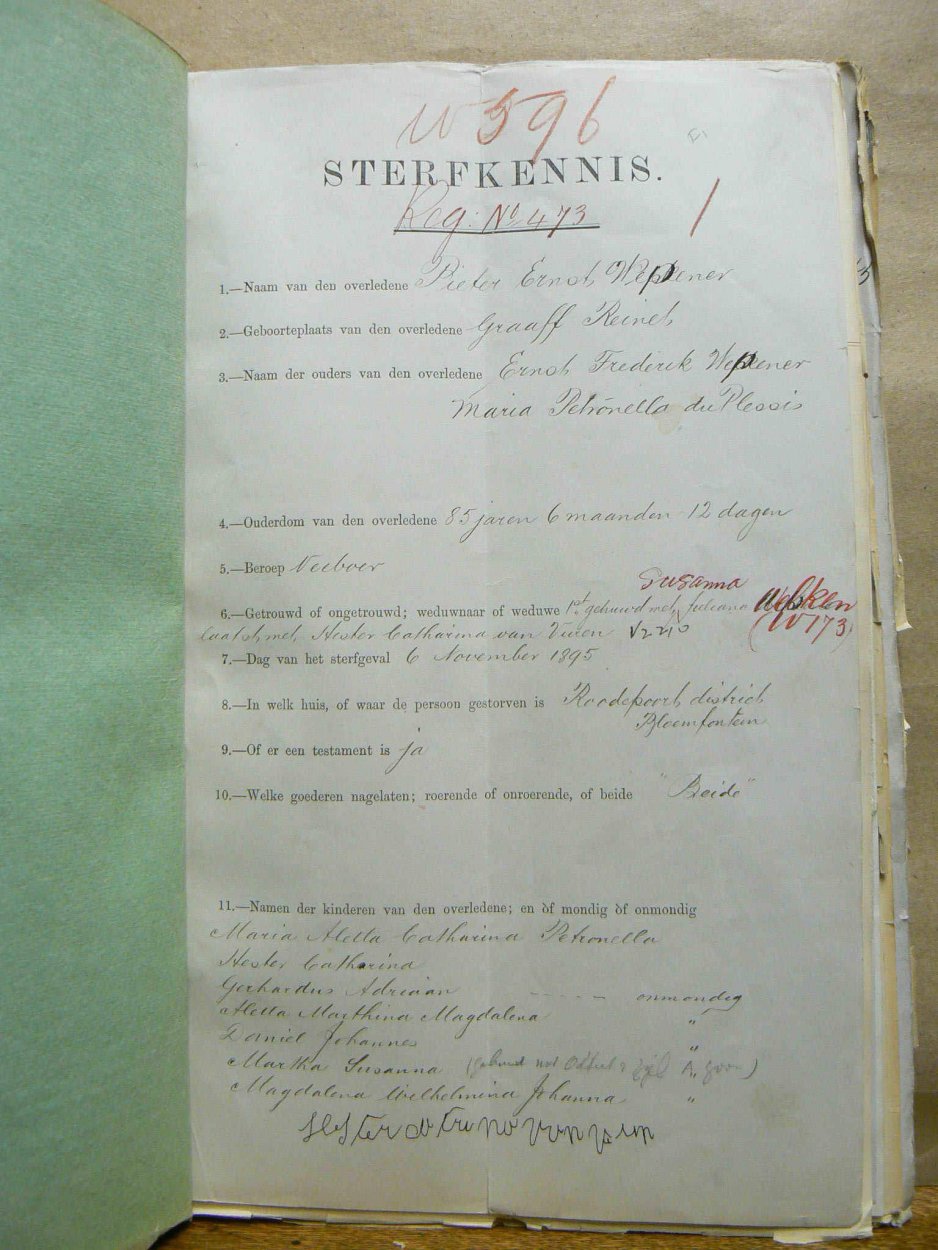 W 596
STERFKENNIS.
Reg: No 473
1
1.—Naam van den overledene Pieter Ernst Wepener
2.—Geboorteplaats van den overledene Graaff Reinet
3.—Naam der ouders van den overledene Ernst Frederik Wepener
Maria Petronella du Plessis
4.—Ouderdom van den overledene 85 jaren 6 maanden 12 dagen
5.—Beroep Veeboer
Susanna
6.—Getrouwd of ongetrouwd; weduwnaar of weduwe 1st gehuwd met Juliana
(W 173)
laatst met Hester Catharina van Vuren
7.—Dag van het sterfgeval 6 November 1895
8.—In welk huis, of waar de persoon gestorven is Roodepoort district
Bloemfontein
9.—Of er een testament is ja
10.—Welke goederen nagelaten; roerende of onroerende, of beide "Beide"
11.—Namen der kinderen van den overledene; en òf mondig òf onmondig
Maria Aletta Catharina Petronella
Hester Catharina
Gerhardus Adriaan - - - - - onmondig
Aletta Marthina Magdalena "
Daniel Johannes "
Martha Susanna
Magdalena Wilhelmina Johanna "